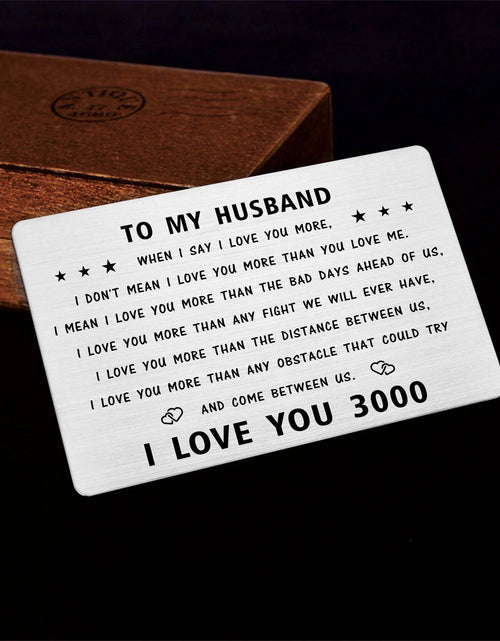 ANTIQUE
TO MY HUSBAND
WHEN I SAY I LOVE YOU MORE,
I DON'T MEAN I LOVE YOU MORE THAN YOU LOVE ME.
I MEAN I LOVE YOU MORE THAN THE BAD DAYS AHEAD OF US,
I LOVE YOU MORE THAN ANY FIGHT WE WILL EVER HAVE,
I LOVE YOU MORE THAN THE DISTANCE BETWEEN US,
I LOVE YOU MORE THAN ANY OBSTACLE THAT COULD TRY
AND COME BETWEEN US.
I LOVE YOU 3000